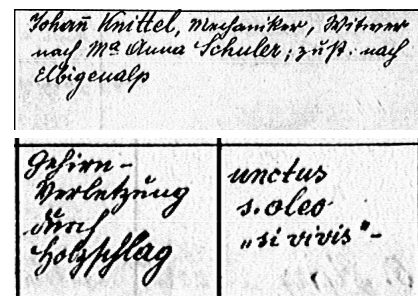 Johañ Knittel, Mechaniker, Witwer
nach Mª Anna Schuler; zust. nach
Elbigenalp
Gehirn-
Verletzung
durch
Holzschlag
unctus
s. oleo
„si vivis"-